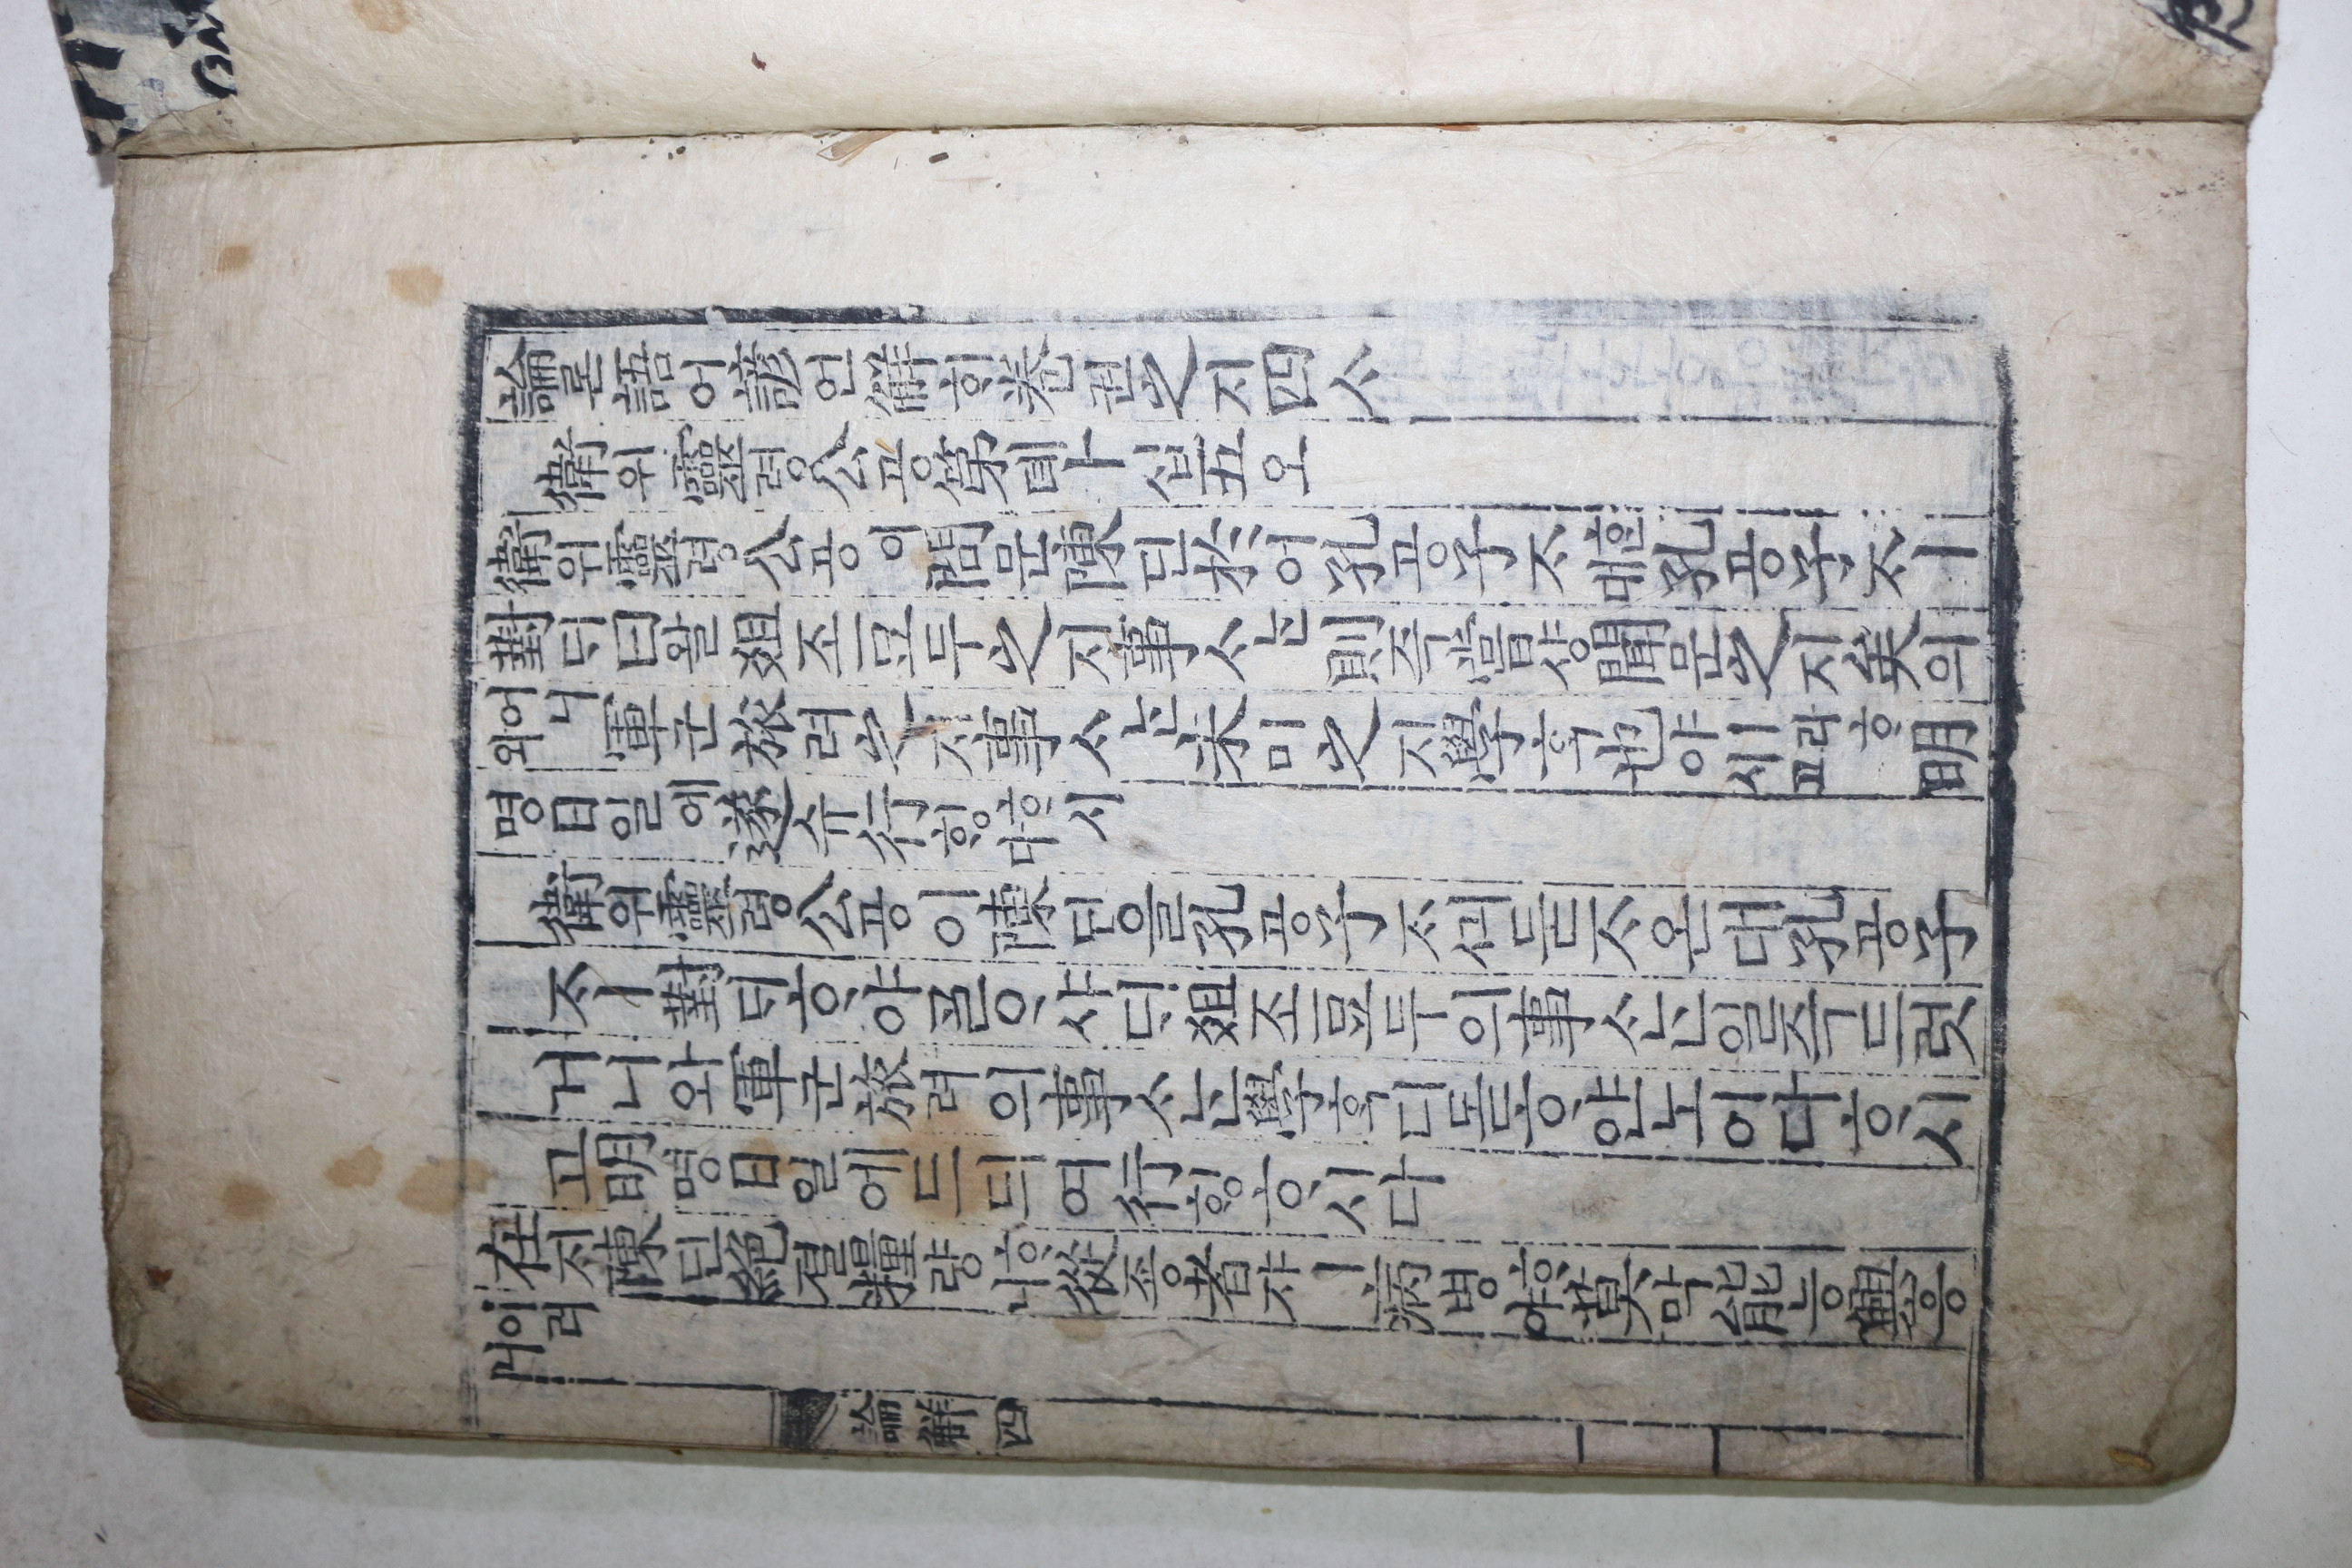 論론語어諺언解ᄒᆡ卷권之지四ᄉᆞ
衛위靈령公공第뎨十십五오
衛위靈령公공이問문陳딘於어孔공子ᄌᆞᄒᆞᆫ대孔공子ᄌᆞㅣ
對ᄃᆡ曰왈俎조豆두之지事ᄉᆞᄂᆞᆫ則즉嘗샹聞문之지矣의
어니와軍군旅려之지事ᄉᆞᄂᆞᆫ未미之지學ᄒᆞᆨ也야ㅣ라ᄒᆞ시고明
명日일에遂슈行ᄒᆡᆼᄒᆞ시다
衛위靈령公공이陳딘을孔공子ᄌᆞᄭᅴ묻ᄌᆞ온대孔공子
ᄌᆞㅣ對ᄃᆡᄒᆞ야ᄀᆞᆯᄋᆞ샤ᄃᆡ俎조豆두의事ᄉᆞᄂᆞᆫ일즉드럿
거니와軍군旅려의事ᄉᆞᄂᆞᆫ學ᄒᆞᆨ디몯ᄒᆞ얀노이다ᄒᆞ시
고明명日일에드듸여行ᄒᆡᆼᄒᆞ시다
在ᄌᆡ陳딘絶졀糧량ᄒᆞ니從죵者쟈ㅣ病병ᄒᆞ야莫막能능興흥
이러니
論解 四